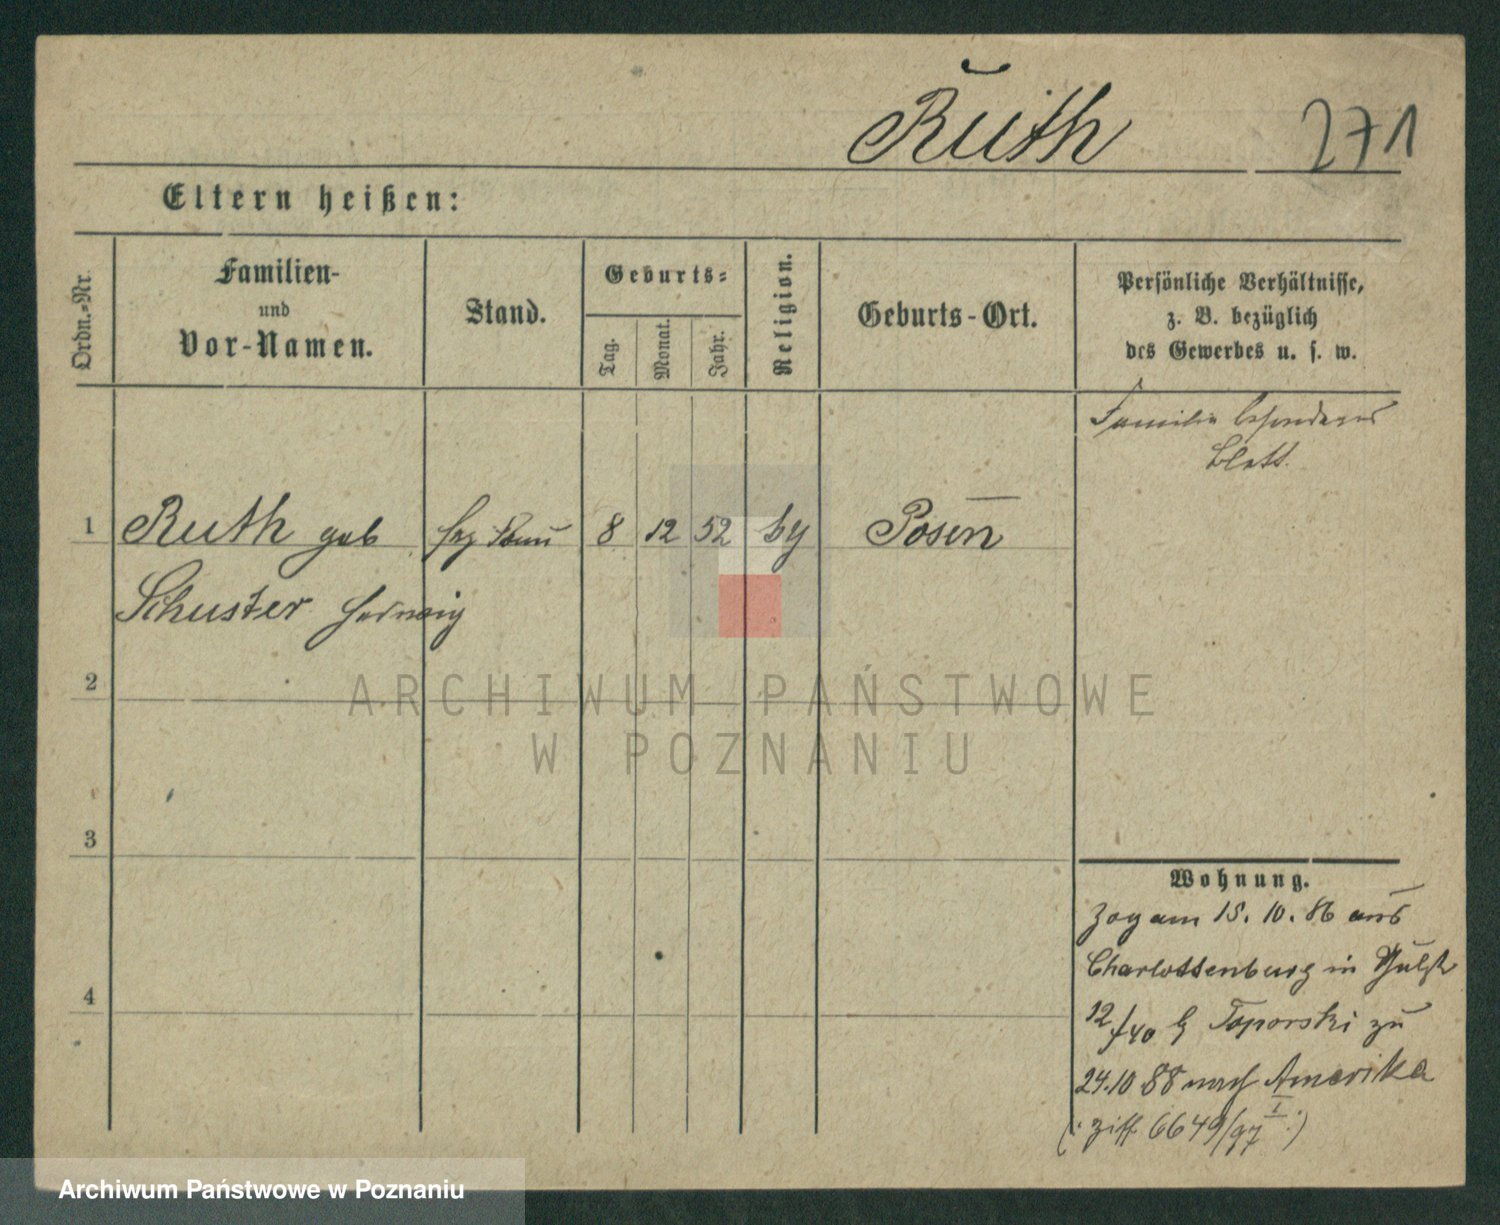 Ruth 271
Eltern heißen:
Ordn.-Nr.
Familien-
und
Vor-Namen.
Stand.
Geburts-
Tag.
Monat.
Jahr.
Religion.
Geburts-Ort.
Persönliche Verhältnisse,
z. B. bezüglich
des Gewerbes u. s. w.
Familie besonderes
Blatt.
1 Ruth geb 8 12 52 Posen
Schuster Hedwig
2
3
4
Wohnung.
Zog am 15. 10. 86 aus
Charlottenburg in
12/40 Toporski zu
24.10 88 nach Amerika
(: Ziff. 6649/97 I :)
ARCHIWUM PAŃSTWOWE
W POZNANIU
Archiwum Państwowe w Poznaniu